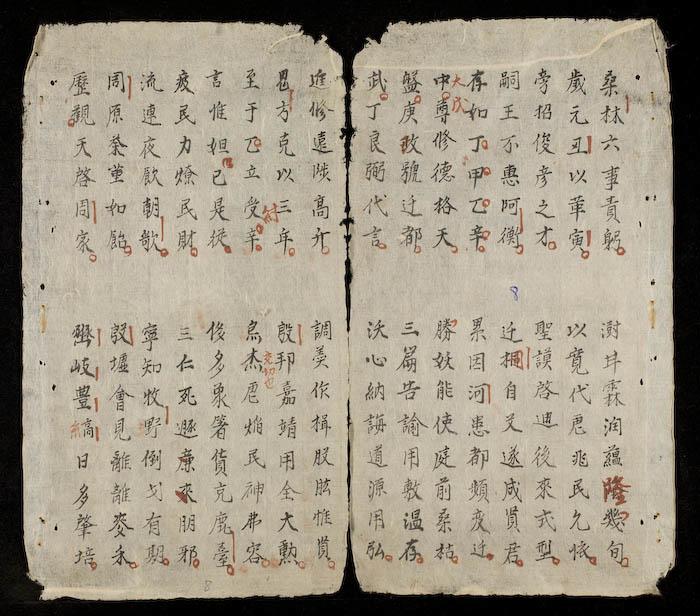 桑林六事責躬
澍井霖潤蘊隆幾旬
歲元丑以革寅
以寬代虐兆民允懷
旁招俊彦之才
聖謨啓迪後來式型
嗣王不惠阿衡
迁桐自艾遂成賢君
存如丁甲乙辛
累因河患都頻变迁
大戊
中尊修德格天
勝妖能使庭前桑枯
盤庚改號迁都
三篇告諭用敷温存
武丁良弼代言
沃心納誨道源用弘
8
進修遠陟高升
調羹作楫股肱惟賢
鬼方克以三年
殷邦嘉靖用全大勲
紂
至于乙立受辛
為杰虐焰民神弗容
言惟妲己是從
多裒箸貨充鹿臺
疲民力燎民財
三仁死遯廉來朋邪
流連夜飲朝歌
寧知牧野倒戈有期
周原荼堇如飴
殷墟會見離離麥禾
歷觀天啓周家
岐豐縞日多肇培
8